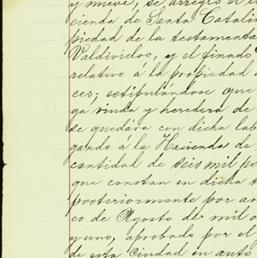 y nueve, se arregló el
cienda de Santa Catalin
piedad de la testamenta
Valdivielso, y el finado
relativo á la propiedad
ces; estipulándose que
ga viuda y heredera de
se quedára con dicha
gando á la Hacienda de
cantidad de seis mil pe
que constan en dicha
posteriormente por an
co de Agosto de mil o
y uno, aprobado por el
de esta Ciudad en auto